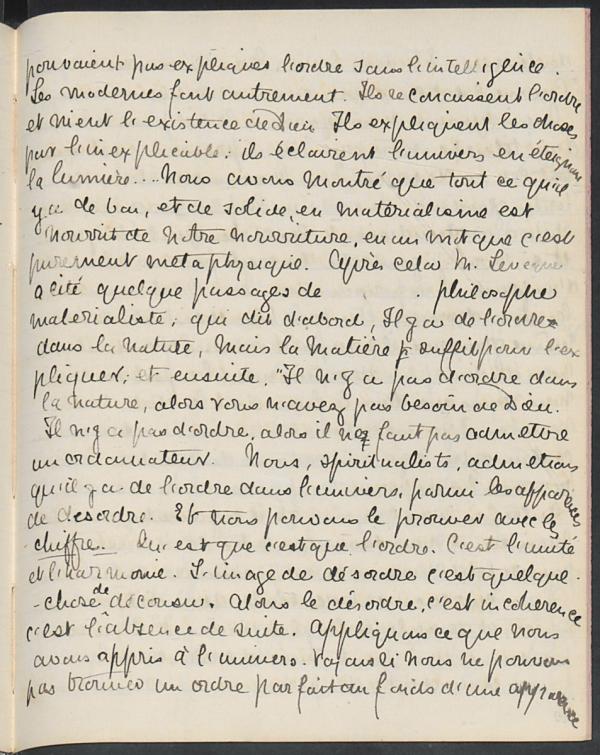 pouvaient pas expliquer l'ordre sans l'intelligence.
Les modernes font autrement. Ils reconaissent l'ordre
et nient l'existence de Dieu Ils expliquent les choses
par l'inexplicable; ils éclairent l'univers en éteignan
la lumière... Nous avons montré que tout ce qu'il
y a de bon, et de solide, en matérialisme est
nourrit de notre nourriture, en un mot que c'est
purement metaphysique. Après cela M. Leveque
a cité quelque passages de . . philosophe
materialiste; qui dit d'abord, Il y a de l'ordre
dans la nature, mais la matière suffit pour l'ex
pliquer; et ensuite, "Il n'y a pas d'ordre dans
la nature, alors vous n'avez pas besoin de Dieu.
Il n'y a pas d'ordre, alors il ne faut pas admettre
un ordonnateur. Nous, spiritualists, admettons
qu'il y a de l'ordre dans l'univers, parmi les apparences
de desordre. Et nous pouvons le prouver avec les
chiffre. Qu'est que c'est que l'ordre. C'est l'unité
et l'harmonie. L'image de désordre c'est quelque-
-chose de décousu. Alors le désordre, c'est incoherence
c'est l'absence de suite. Appliquons ce que nous
avons appris à l'univers. Voyons si nous ne pouvons
pas trouver un ordre parfait au fonds d'une apparence